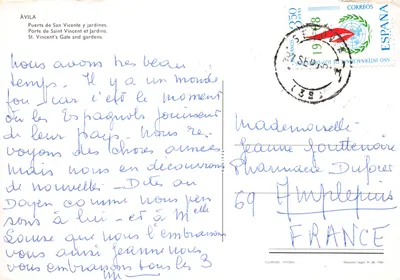 ÁVILA
Puerta de San Vicente y jardines.
Porte de Saint Vincent et Jardins.
St. Vincent's Gate and gardens.
Nous avons très beau
temps. Il y a un monde
fou car c'est le moment
où les Espagnols jouissent
de leur pays. Nous re-
voyons des choses connues
mais nous en découvrons
de nouvelles - Dites au
Doyen comme nous pen
sons à lui - et à Melle
Louise que nous l'embrassons
vous aussi Jeanne nous
vous embrassons tous les 3
3,50
PTAS
1968
CORREOS
ESPAÑA
SEP
Mademoiselle
Jeanne
Pharmacie
69 Amplepuis
FRANCE